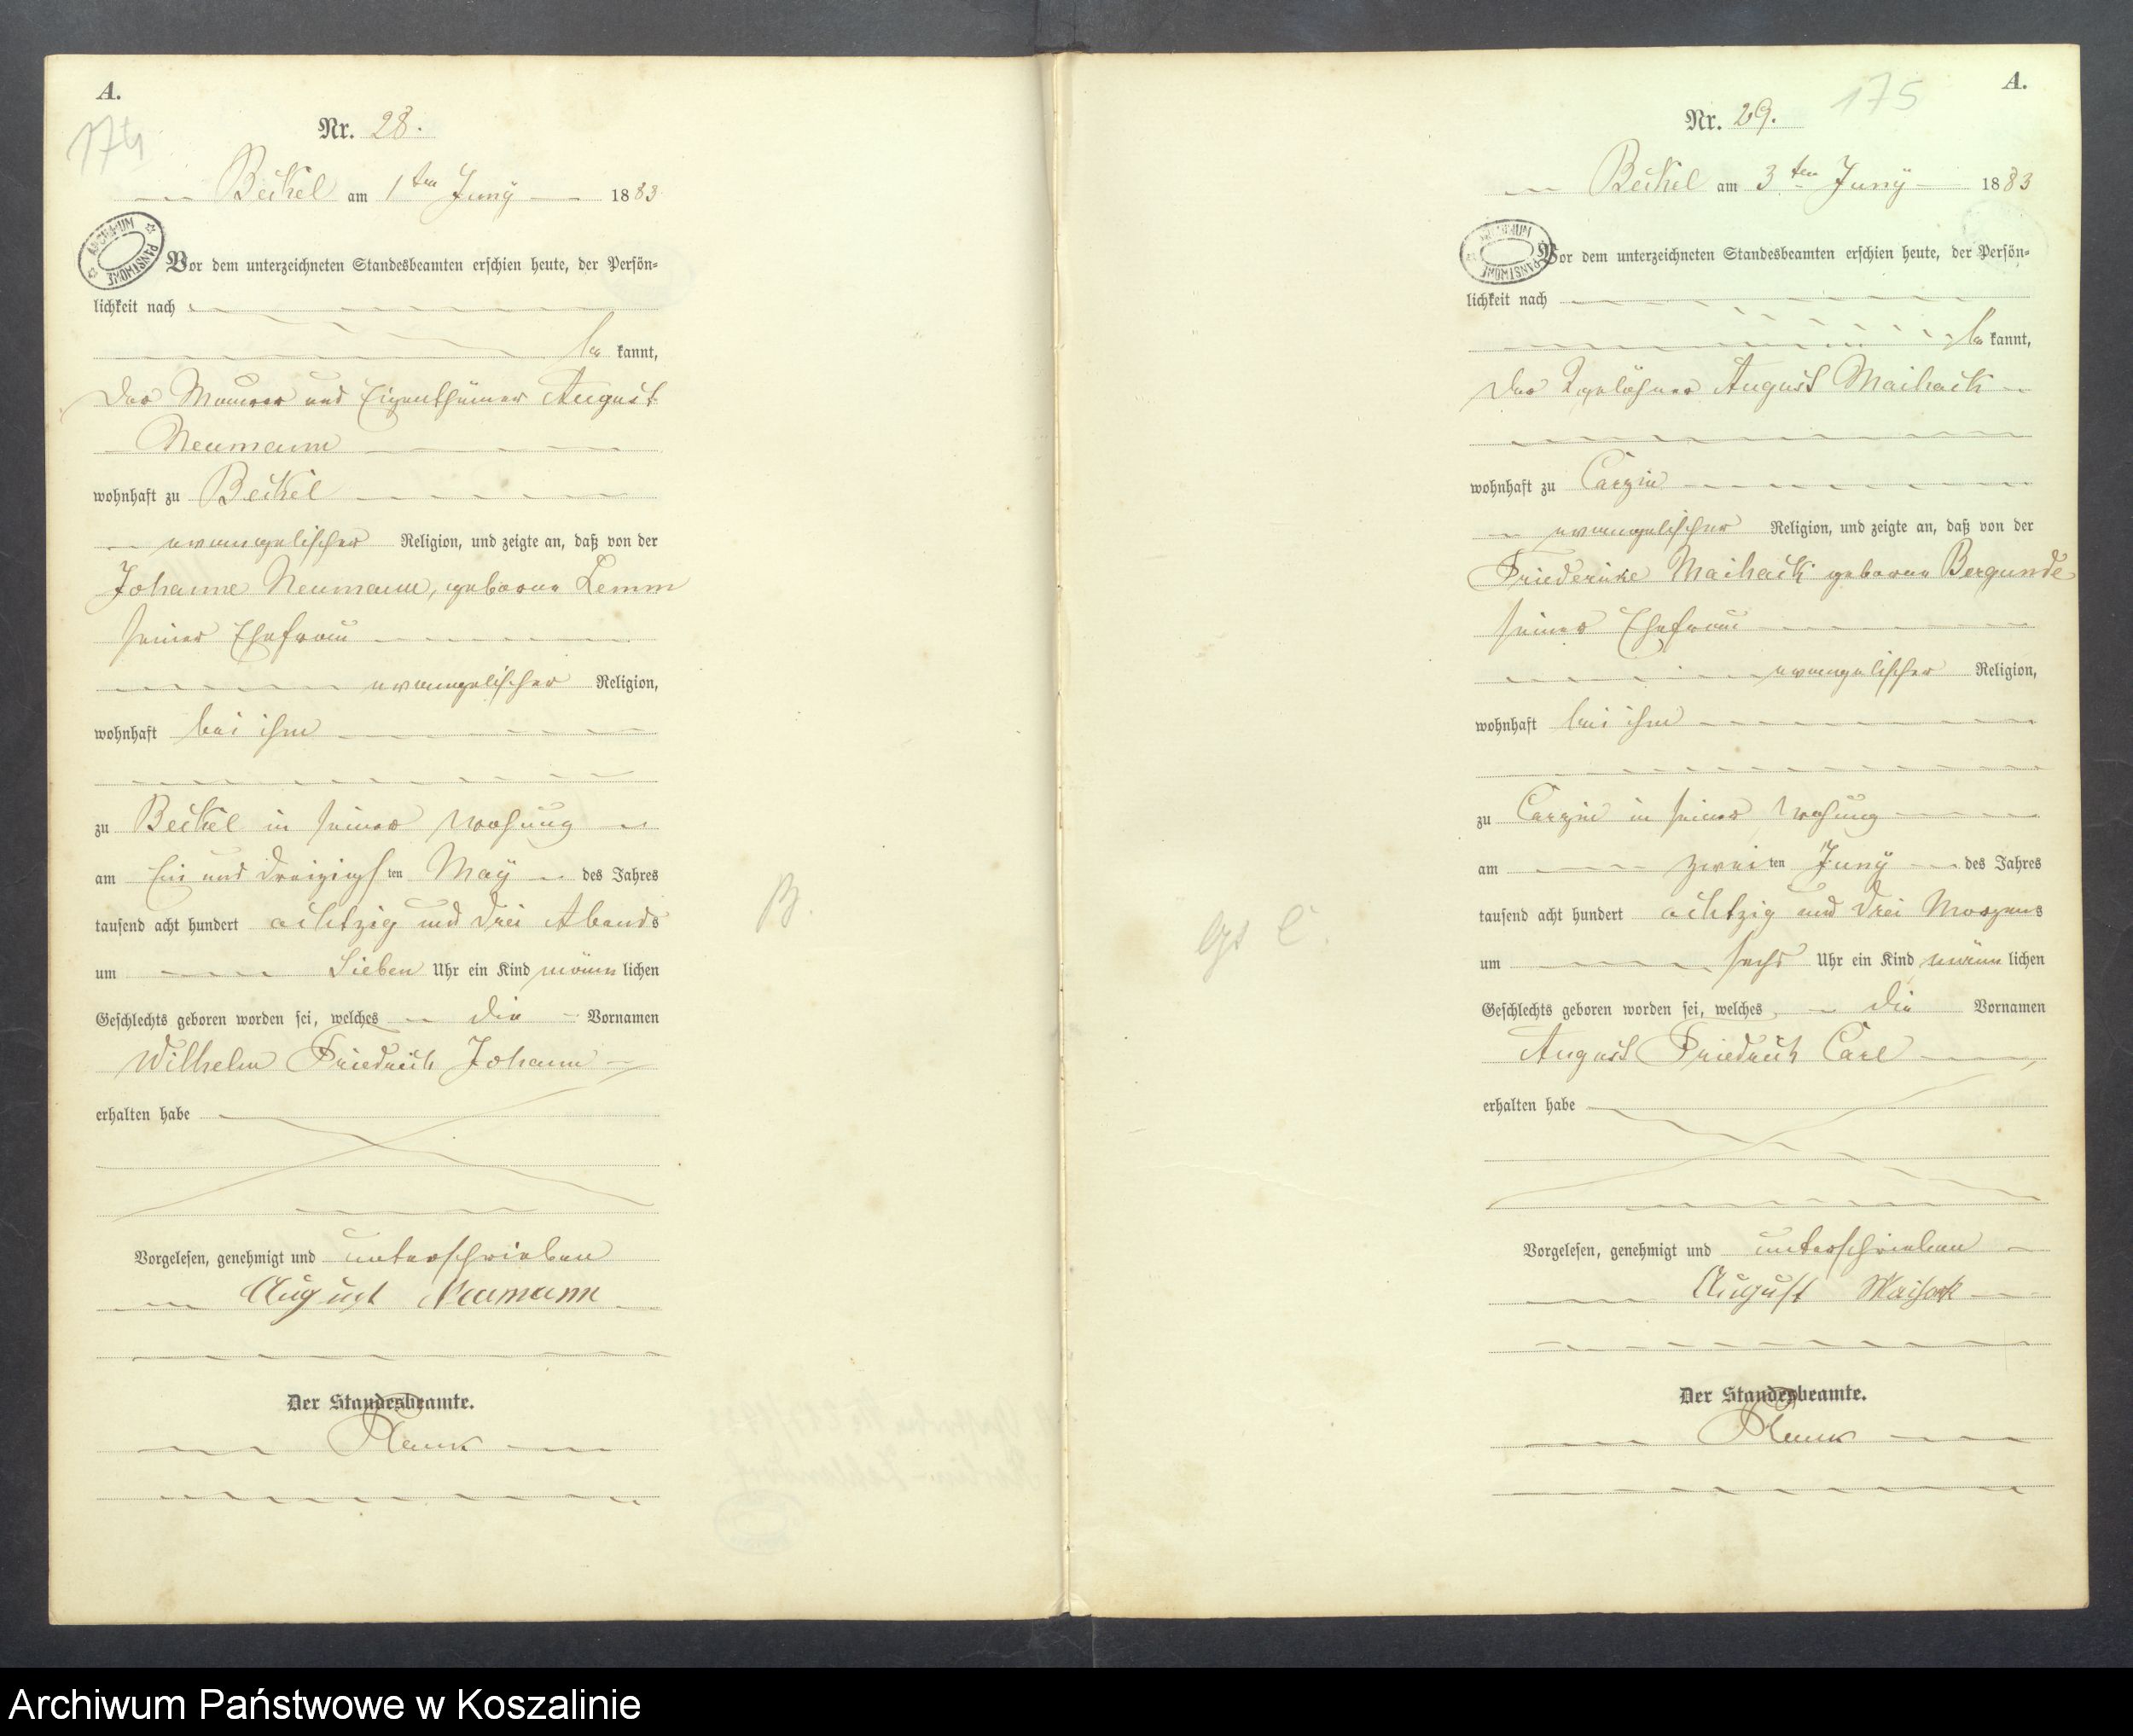 A.
174
Nr. 28.
Beckel am 1ten Juny 1883
ARCHIWUM PAŃSTWOWE
Vor dem unterzeichneten Standesbeamten erschien heute, der Persön-
lichkeit nach
be kannt,
der Maurer und Eigenthümer August
Neumann
wohnhaft zu Beckel
evangelischer Religion, und zeigte an, daß von der
Johanne Neumann, geborne Lemm
seiner Ehefrau
evangelischer Religion,
wohnhaft bei ihm
zu Beckel in seiner Wohnung
am Ein und dreizigsten May des Jahres
tausend acht hundert achtzig und drei Abends
um Sieben Uhr ein Kind männlichen
Geschlechts geboren worden sei, welches die Vornamen
Wilhelm Friedrich Johann
erhalten habe
Vorgelesen, genehmigt und unterschrieben
August Neumann
Der Standesbeamte.
B.
A.
175
Nr. 29.
Beckel am 3ten Juny 1883
ARCHIWUM PAŃSTWOWE
Vor dem unterzeichneten Standesbeamten erschien heute, der Persön-
lichkeit nach
be kannt,
der Tagelöhner August Maihack
wohnhaft zu Carzin
evangelischer Religion, und zeigte an, daß von der
Friedericke Maihack geborne Bergunde
seiner Ehefrau
evangelischer Religion,
wohnhaft bei ihm
zu Carzin in seiner Wohnung
am zweiten Juny des Jahres
tausend acht hundert achtzig und drei Morgens
um sechs Uhr ein Kind männlichen
Geschlechts geboren worden sei, welches die Vornamen
August Friedrich Carl
erhalten habe
Vorgelesen, genehmigt und unterschrieben
August Maihack
Der Standesbeamte.
Archiwum Państwowe w Koszalinie